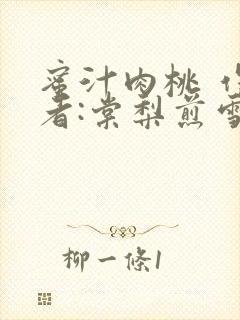 蜜汁肉桃
者:棠梨煎雪
柳一條1